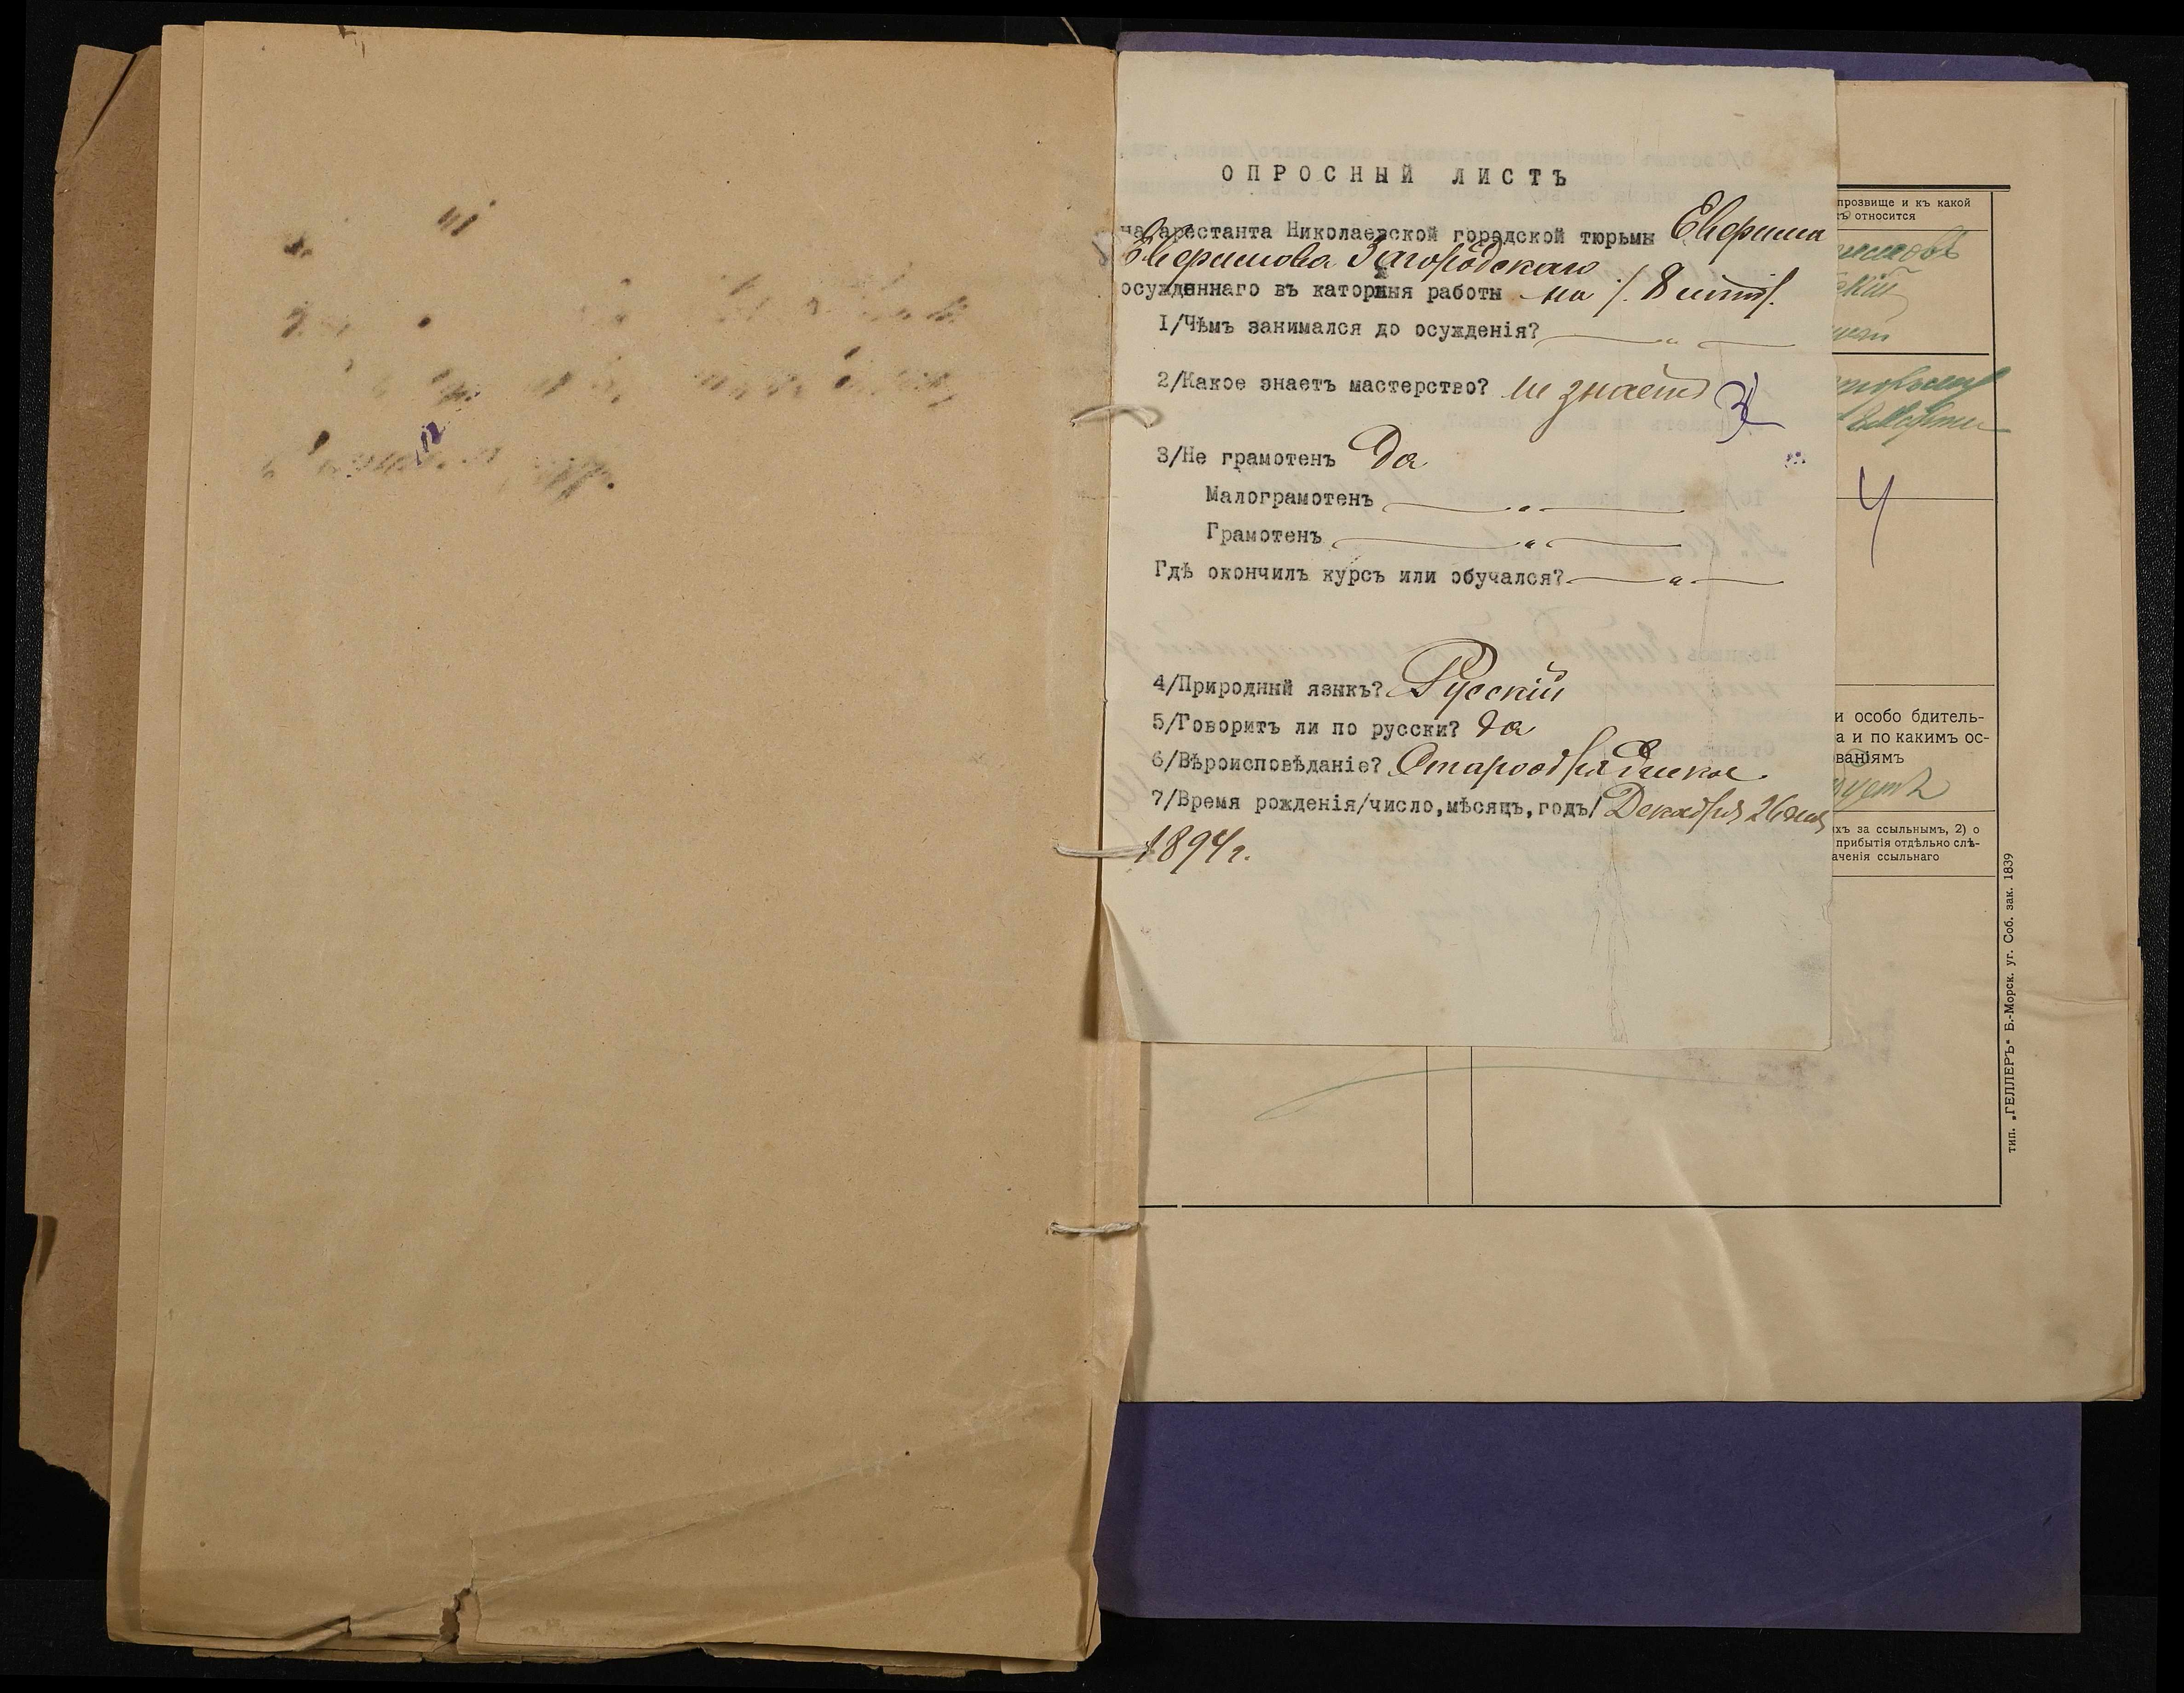 ОПРОСНЫЙ ЛИСТЪ
на арестанта Николаевской городской тюрьмы Евфима
Ефимова Загородскаго
осужденнаго въ каторжныя работы на 8 лѣтъ
1/Чѣмъ занимался до осужденія? — " —
2/Какое знаетъ мастерство? не знаетъ
3
3/Не грамотенъ Да
Малограмотенъ — " —
Грамотенъ — " —
Гдѣ окончилъ курсъ или обучался? — " —
4/Природный языкъ? Русскій
5/Говоритъ ли по русски? да
6/Вѣроисповѣданіе? Старообрядческое.
7/Время рожденія/число,мѣсяцъ,годъ/ Декабря 26 дня
1894 г.
прозвище и къ какой
относится
4
и особо бдитель-
а и по какимъ ос-
ваніямъ
хъ за ссыльнымъ, 2) о
прибытія отдѣльно слѣ-
аченія ссыльнаго
тип. „ГЕЛЛЕРЪ“ Б.-Морск. уг. Соб. зак. 1839